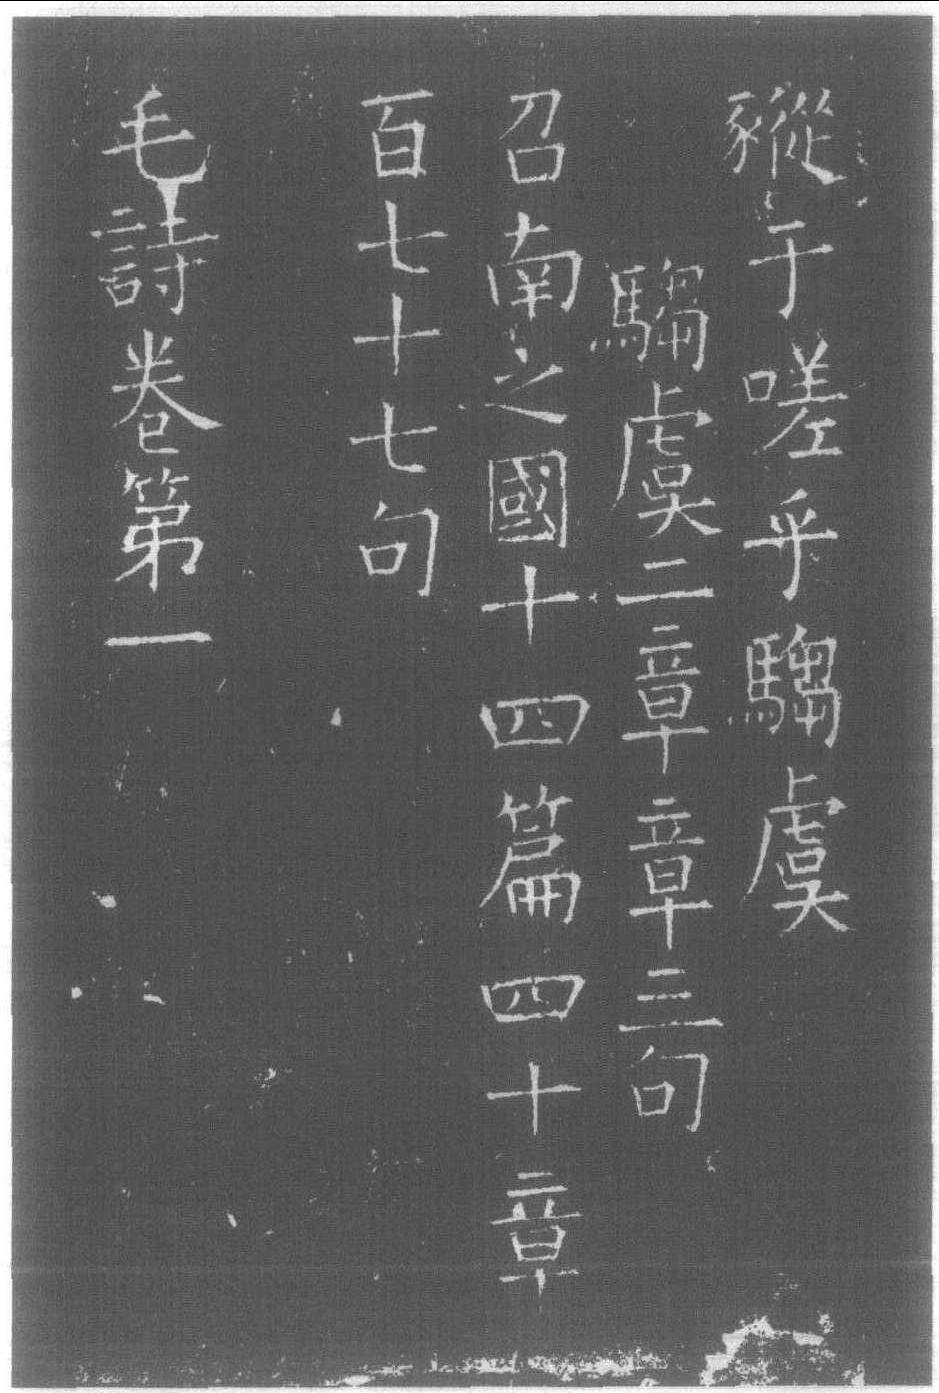 豵于嗟乎騶虞
騶虞二章章三句
召南之國十四篇四十章
百七十七句
毛詩卷第一